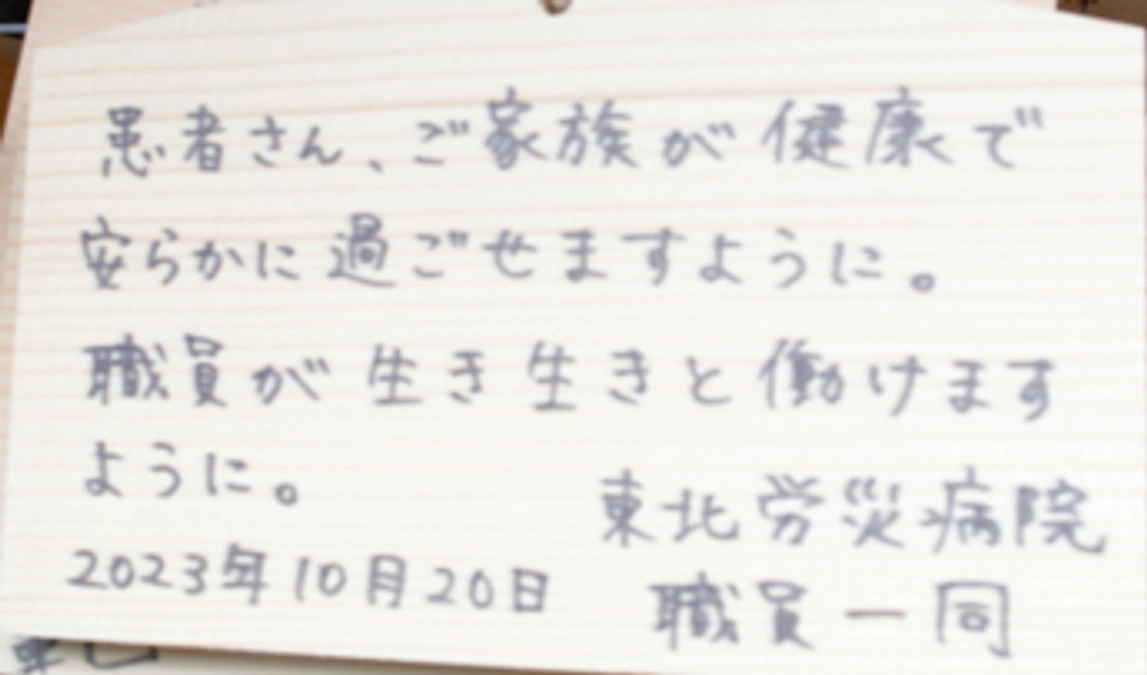 患者さん、ご家族が健康で
安らかに過ごせますように。
職員が生き生きと働けます
ように。
東北労災病院
2023年10月20日
職員一同